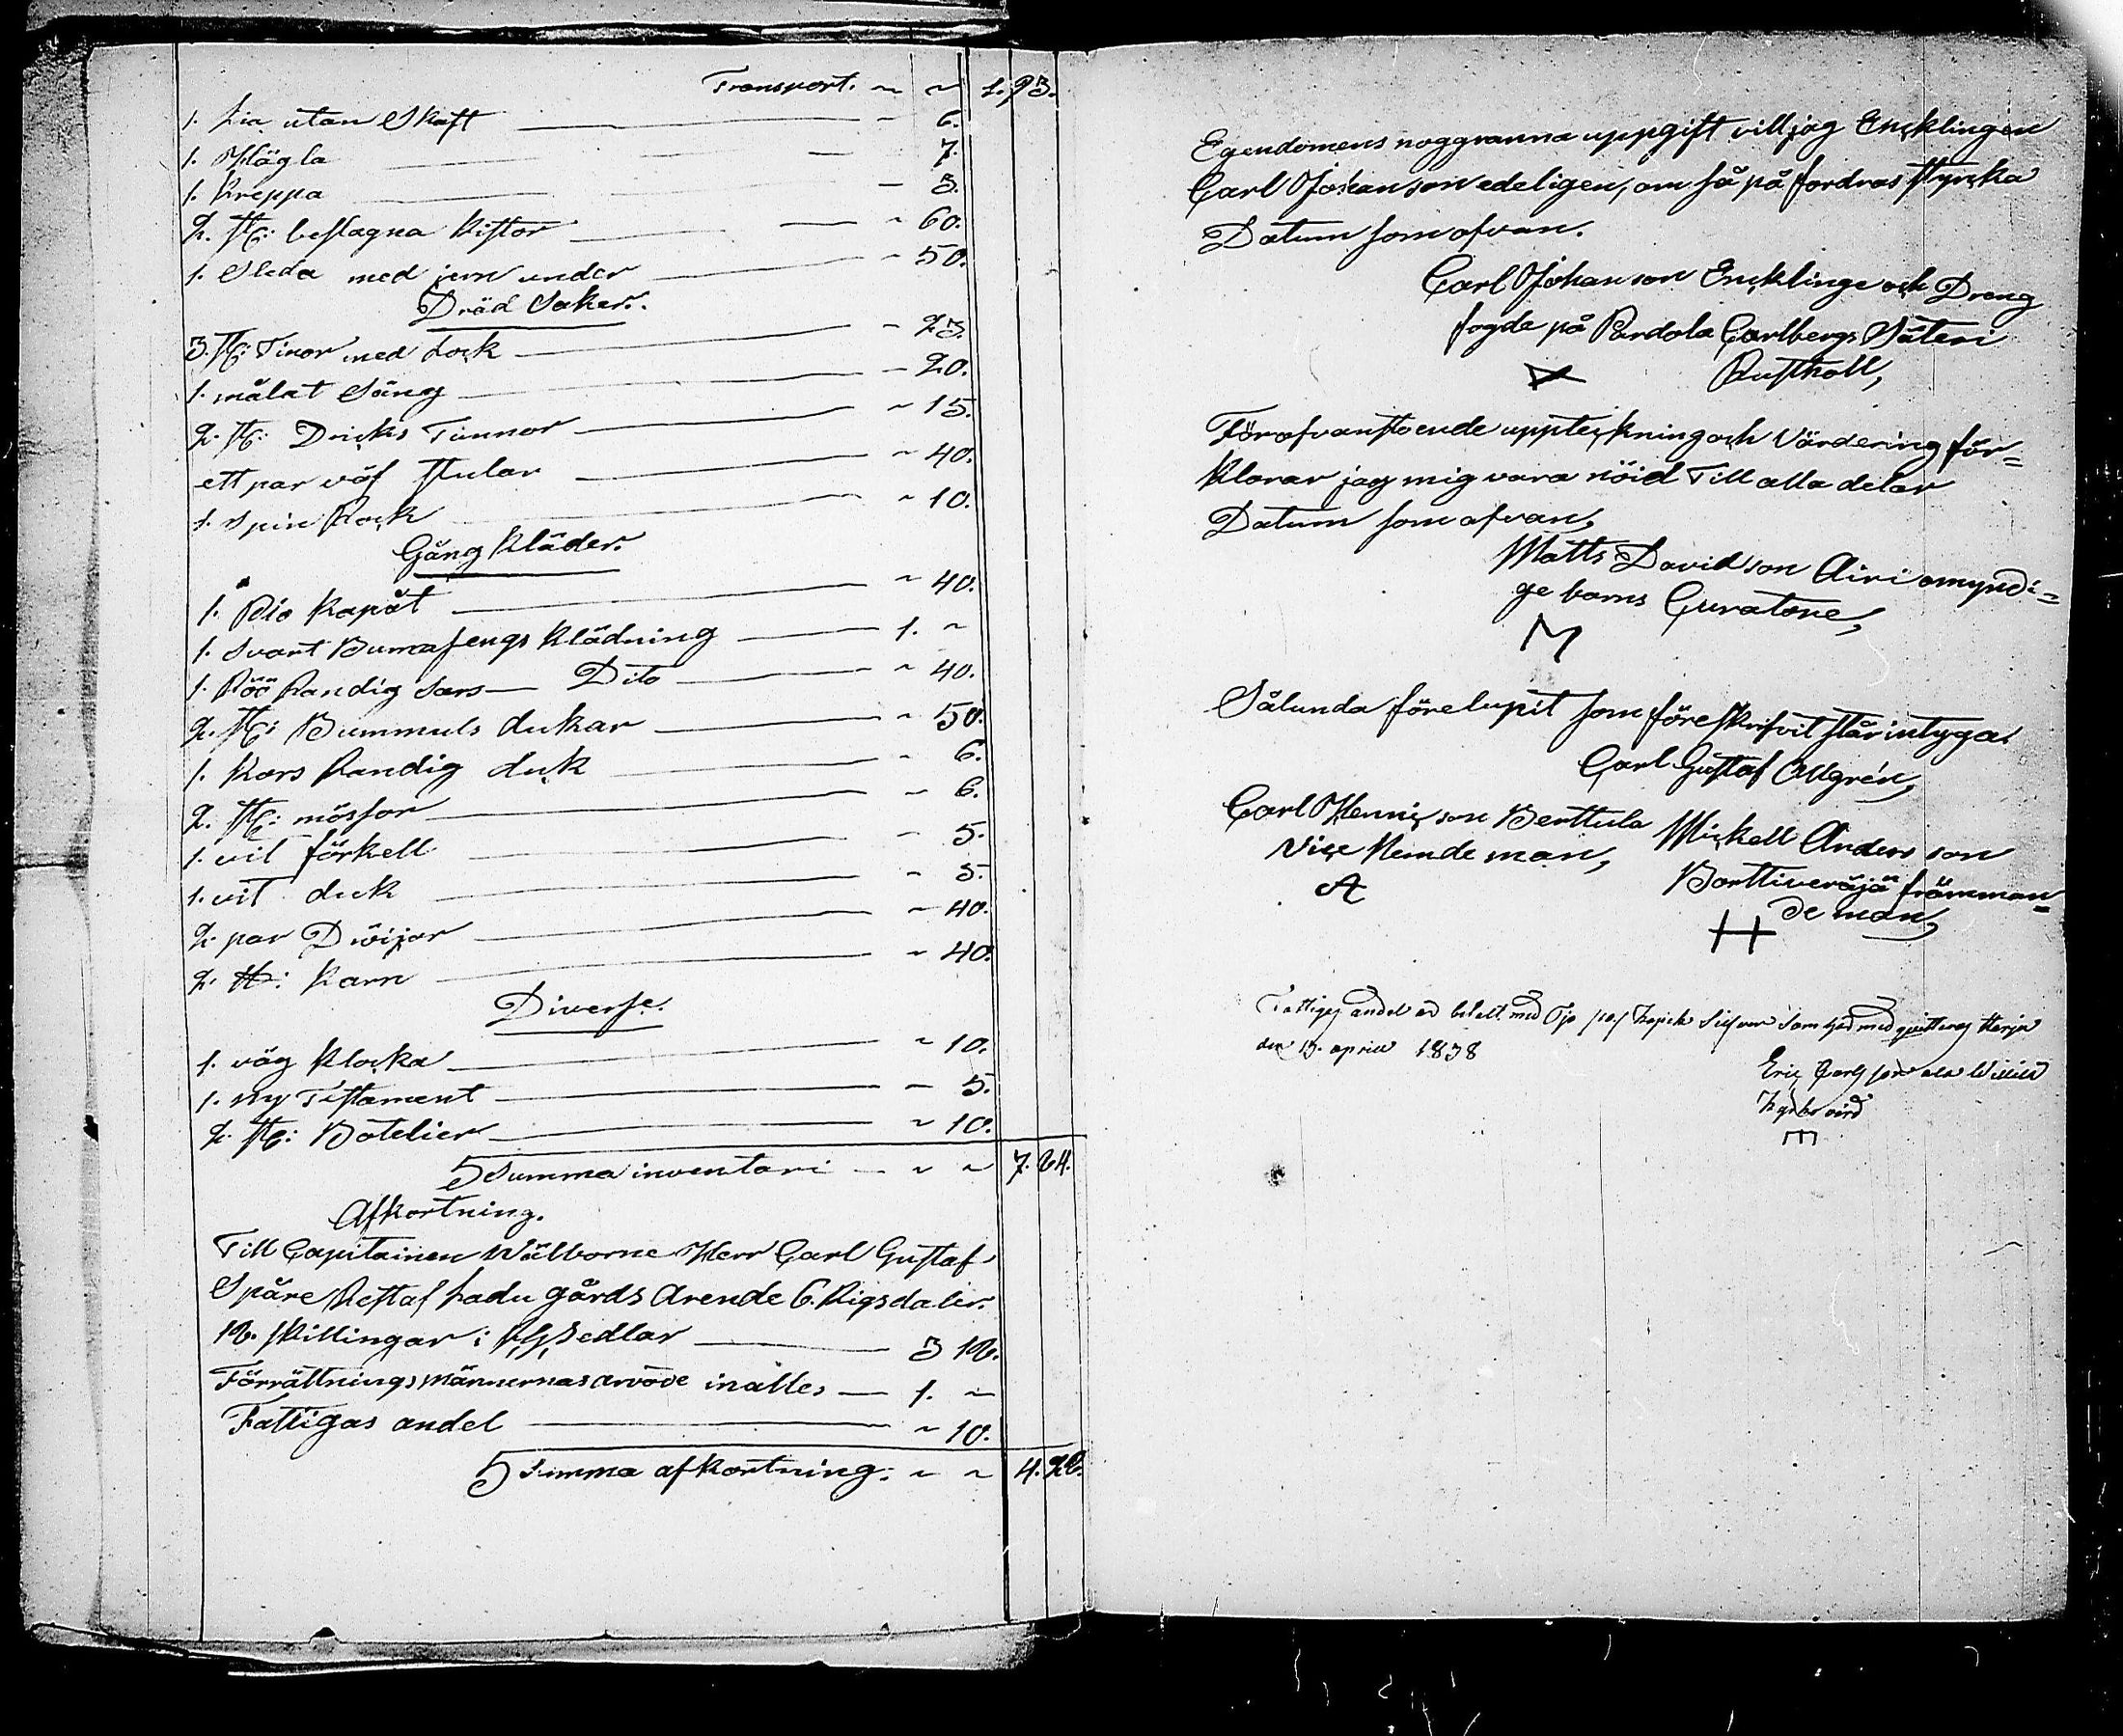 Transport. ~ ~ 1. 93.
1. Lia utan Skaft ~ 6.
1. Hägla ~ 7.
1. Kreppa ~ 3.
2. st: beslagna Kistor ~ 60.
1. Sleda med jern under ~ 50.
Dräd Saker.
3. st: Tinor med Lock ~ 23.
1. målat Säng ~ 20.
2. st: Dricks Tunnor ~ 15.
ett par väf stular ~ 40.
1. Spin Rock ~ 10.
Gång Kläder.
1. Blå Kapåt ~ 40.
1. Svart Bumasengs Klädning 1. ~
1. Röö Randig sars Dito ~ 40.
2. st: Bummuls dukar ~ 50.
1. Kors Randig duk ~ 6.
2. st: mössor ~ 6.
1. vit förkell ~ 5.
1. vit duk ~ 5.
2. par Dröijor ~ 40.
2. st: Karn ~ 40.
Diverse.
1. väg Klocka ~ 10.
1. ny Testament ~ 5.
2. st: Botelier ~ 10.
Summa inventari ~ ~ 7. 64.
Afkortning.
Till Capitainen Wälborne Herr Carl Gustaf
Spåre Restaf Ladu gårds Arende 6. Rigsdaler.
16. skillingar i sedlar 3 16.
Förrättningsmännernas arvode inalles 1. ~
Fattigas andel ~ 10.
Summa afkortning. ~ ~ 4. 26.
Egendomens noggranna uppgift vill jag Encklingen
Carl Johanson edeligen, om så på fordras styrcka
Datum som ofvan.
Carl Johanson Encklinge och Dreng
fogde på Pardola Carlbergs Säteri
Rusthåll,
För ofvanstoende uppteckning och Värdering för=
klarar jag mig vara nöid Till alla delar
Datum som ofvan,
Matts Davidson Airi omyndi=
ge barns Curatore,
M
Sålunda förelupit som föreskrifvit står intyga.
Carl Gustaf Allgrén,
Carl Hennicson Berttula
Vice Nemde man,
A
Mickell Anderson
Borttiveräjä främman=
de man,
H
Fattiges andel är betalt med Tjo /10/ Kopek Silfver som
den 13. april 1838
Eric
E